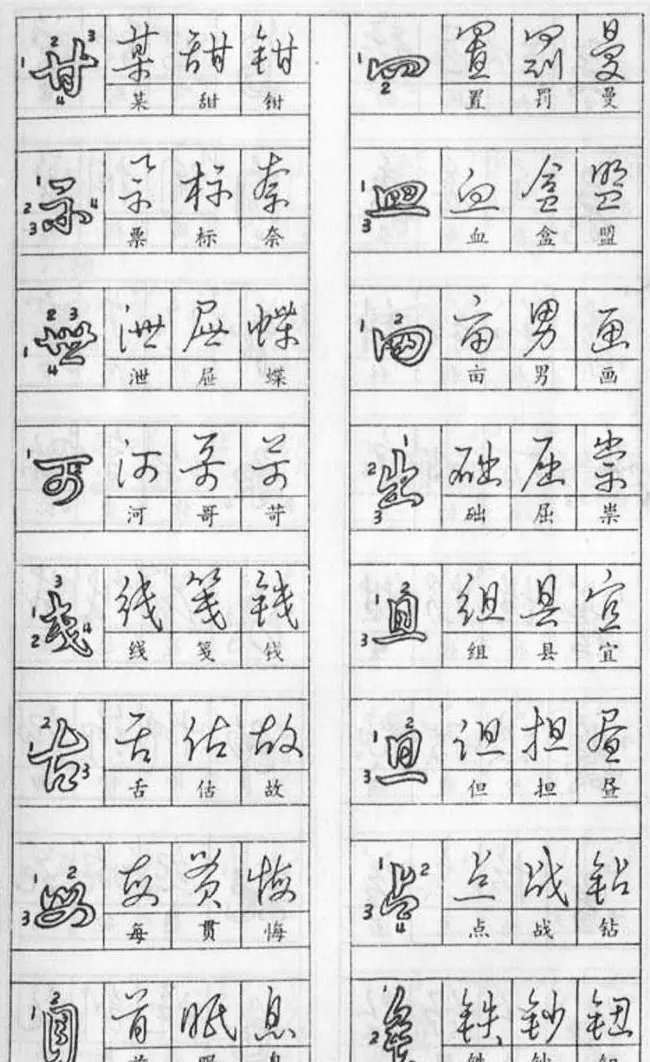 某 甜 钳
某 甜 钳
票 标 奈
票 标 奈
泄 屉 蝶
泄 屉 蝶
可 河 哥 苛
河 哥 苛
线 笺 钱
线 笺 钱
舌 估 故
舌 估 故
每 贯 悔
每 贯 悔
首 眠 息
四 置 罚 曼
置 罚 曼
皿 血 盒 盟
血 盒 盟
亩 男 画
亩 男 画
出 础 屈 崇
础 屈 崇
组 县 宜
组 县 宜
但 担 昼
但 担 昼
点 战 钻
点 战 钻
铁 钞 钮